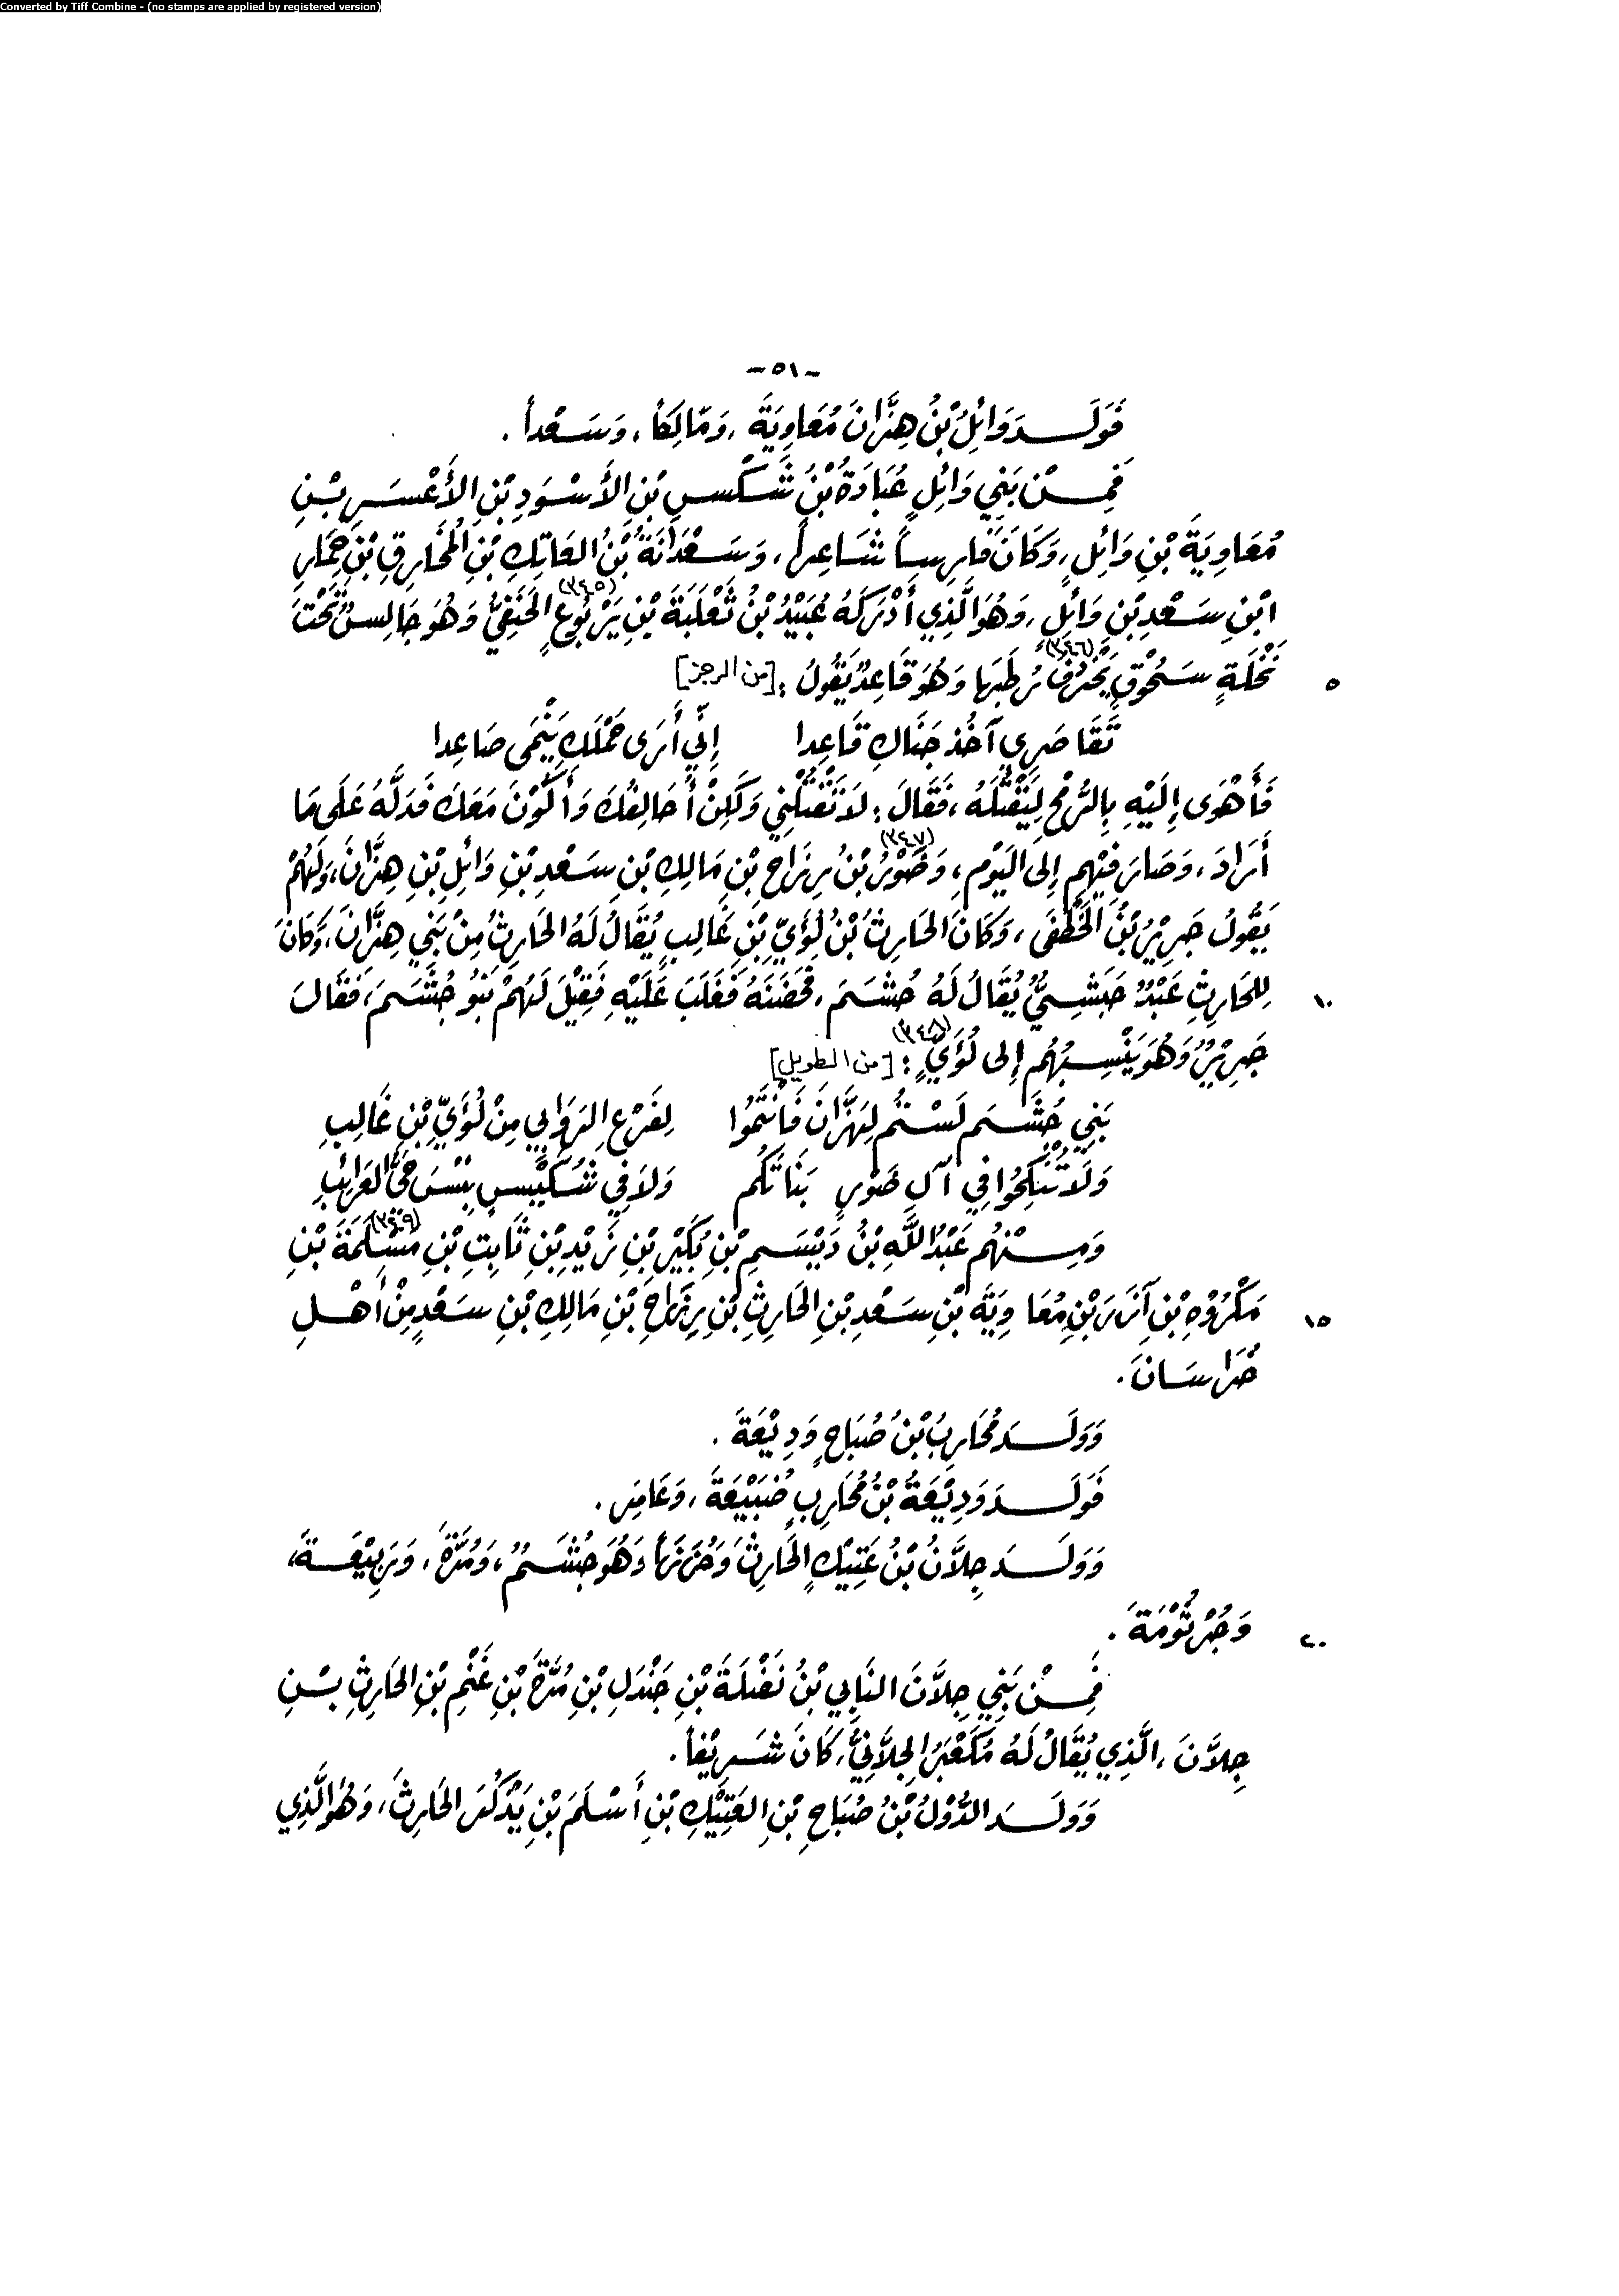 Converted by Tiff Combine - (no stamps are applied by registered version)
-٥١-
فَوَلَدَ وَائِلُ بْنُ هِزَّانَ مُعَاوِيَةَ، وَمَالِكاً، وَسَعْداً.
فَمِنْ بَنِي وَائِلٍ عُبَادَةُ بْنُ شَكْسِ بْنِ الأَسْوَدِ بْنِ الأَعْسَرِ بْنِ
مُعَاوِيَةَ بْنِ وَائِلٍ، وَكَانَ فارِساً شَاعِراً، وَسَعْدَانَةُ بْنُ العَاتِكِ بْنِ المُخَارِقِ بْنِ حِمَارِ
ابْنِ سَعْدِ بْنِ وَائِلٍ، وَهُوَ الَّذِي أَدْرَكَهُ عُبَيْدُ بْنُ ثَعْلَبَةَ بْنِ يَرْبُوعٍ (٣٤٥) الحَنَفِيُّ وَهُوَ جَالِسٌ تَحْتَ
٥ نَخْلَةٍ سَحُوقٍ يَخْرُفُ (٣٤٦) رُطَبَها وَهُوَ قَاعِدٌ يَقُولُ: [من الرجز]
تَقَاصَرِي آخُذْ جَنَاكِ قَاعِدا إِنِّي أَرَى حَمْلَكِ يَنْمَى صَاعِدا
فَأَهْوَى إِلَيْهِ بِالرُّمْحِ لِيَقْتُلَهُ، فَقَالَ: لاَ تَقْتُلْنِي وَلَكِنْ أُحَالِفُكَ وَأَكُونَ مَعَكَ فَدَلَّهُ عَلَى مَا
أَرَادَ، وَصَارَ فِيْهِم إِلى اليَوْمِ، وَضَوْرُ (٣٤٧) بْنُ رِزَاحِ بْنِ مَالِكِ بْنِ سَعْدِ بْنِ وَائِلِ بْنِ هِزَّانَ، وَلَهُمْ
يَقُولُ جَرِيْرُ بْنُ الخَطَفَى، وَكَانَ الحَارِثُ بْنُ لُؤَيِّ بْنِ غَالِبٍ يُقَالُ لَهُ الحَارِثُ مِنْ بَنِي هِزَّانَ، وَكَانَ
١٠ لِلحَارِثِ عَبْدٌ حَبَشِيٌّ يُقَالُ لَهُ جُشَمَ، فَحَضَنَهُ فَغَلَبَ عَلَيْهِ فَقِيْلَ لَهُمْ بَنُو جُشَمَ، فَقَالَ
جَرِيْرٌ وَهُوَ يَنْسِبُهُم إِلى لُؤَيٍّ (٣٤٨): [من الطويل]
بَنِي جُشَمٍ لَسْتُم لِهِزَّانَ فَانْتَمُوا لِفَرْعِ الرَوَابِي مِنْ لُؤَيِّ بْنِ غَالِبِ
وَلاَ تُنْكِحُوا فِي آلِ ضَوْرٍ بَنَاتَكُم وَلاَ فِي شُكَيْسٍ بِئْسَ حَيُّ الغَرائِبِ
وَمِنْهُم عَبْدُ اللَّهِ بْنُ دَيْسَمِ بْنِ بُكَيْرِ بْنِ زَيْدِ بْنِ ثَابِتِ بْنِ مَسْلَمَةَ (٣٤٩) بْنِ
١٥ مَكْرُوْهِ بْنِ آزَرَ بْنِ مُعَاوِيَةَ بْنِ سَعْدِ بْنِ الحَارِثِ بْنِ رِزَاحِ بْنِ مَالِكِ بْنِ سَعْدٍ مِنْ أَهْلِ
خُرَاسَانَ.
وَوَلَدَ مُحَارِبُ بْنُ صُبَاحٍ وَدِيْعَةَ.
فَوَلَدَ وَدِيْعَةُ بْنُ مُحَارِبٍ ضُبَيْعَةَ، وَعَامِرَ.
وَوَلَدَ جِلاَّنُ بْنُ عَتِيْكٍ الحَارِثَ وَحُزَزَاً وَهُوَ جُشَمٌ، وَمُرَّةَ، وَرَبِيْعَةَ،
٢٠ وَجُرْثُوْمَةَ.
فَمِنْ بَنِي جِلاَّنَ النَابِي بْنُ نَضْلَةَ بْنِ جَنْدَلِ بْنِ مُرَّةَ بْنِ غَنْمِ بْنِ الحَارِثِ بْنِ
جِلاَّنَ، الَّذِي يُقَالُ لَهُ مُكَعْبَرُ الجِلاَّنِيُّ، كَانَ شَرِيْفاً.
وَوَلَدَ الدُّوْلُ بْنُ صُبَاحِ بْنِ العَتِيْكِ بْنِ أَسْلَمَ بْنِ يَذْكُرَ الحَارِثَ، وَهُوَ الَّذِي